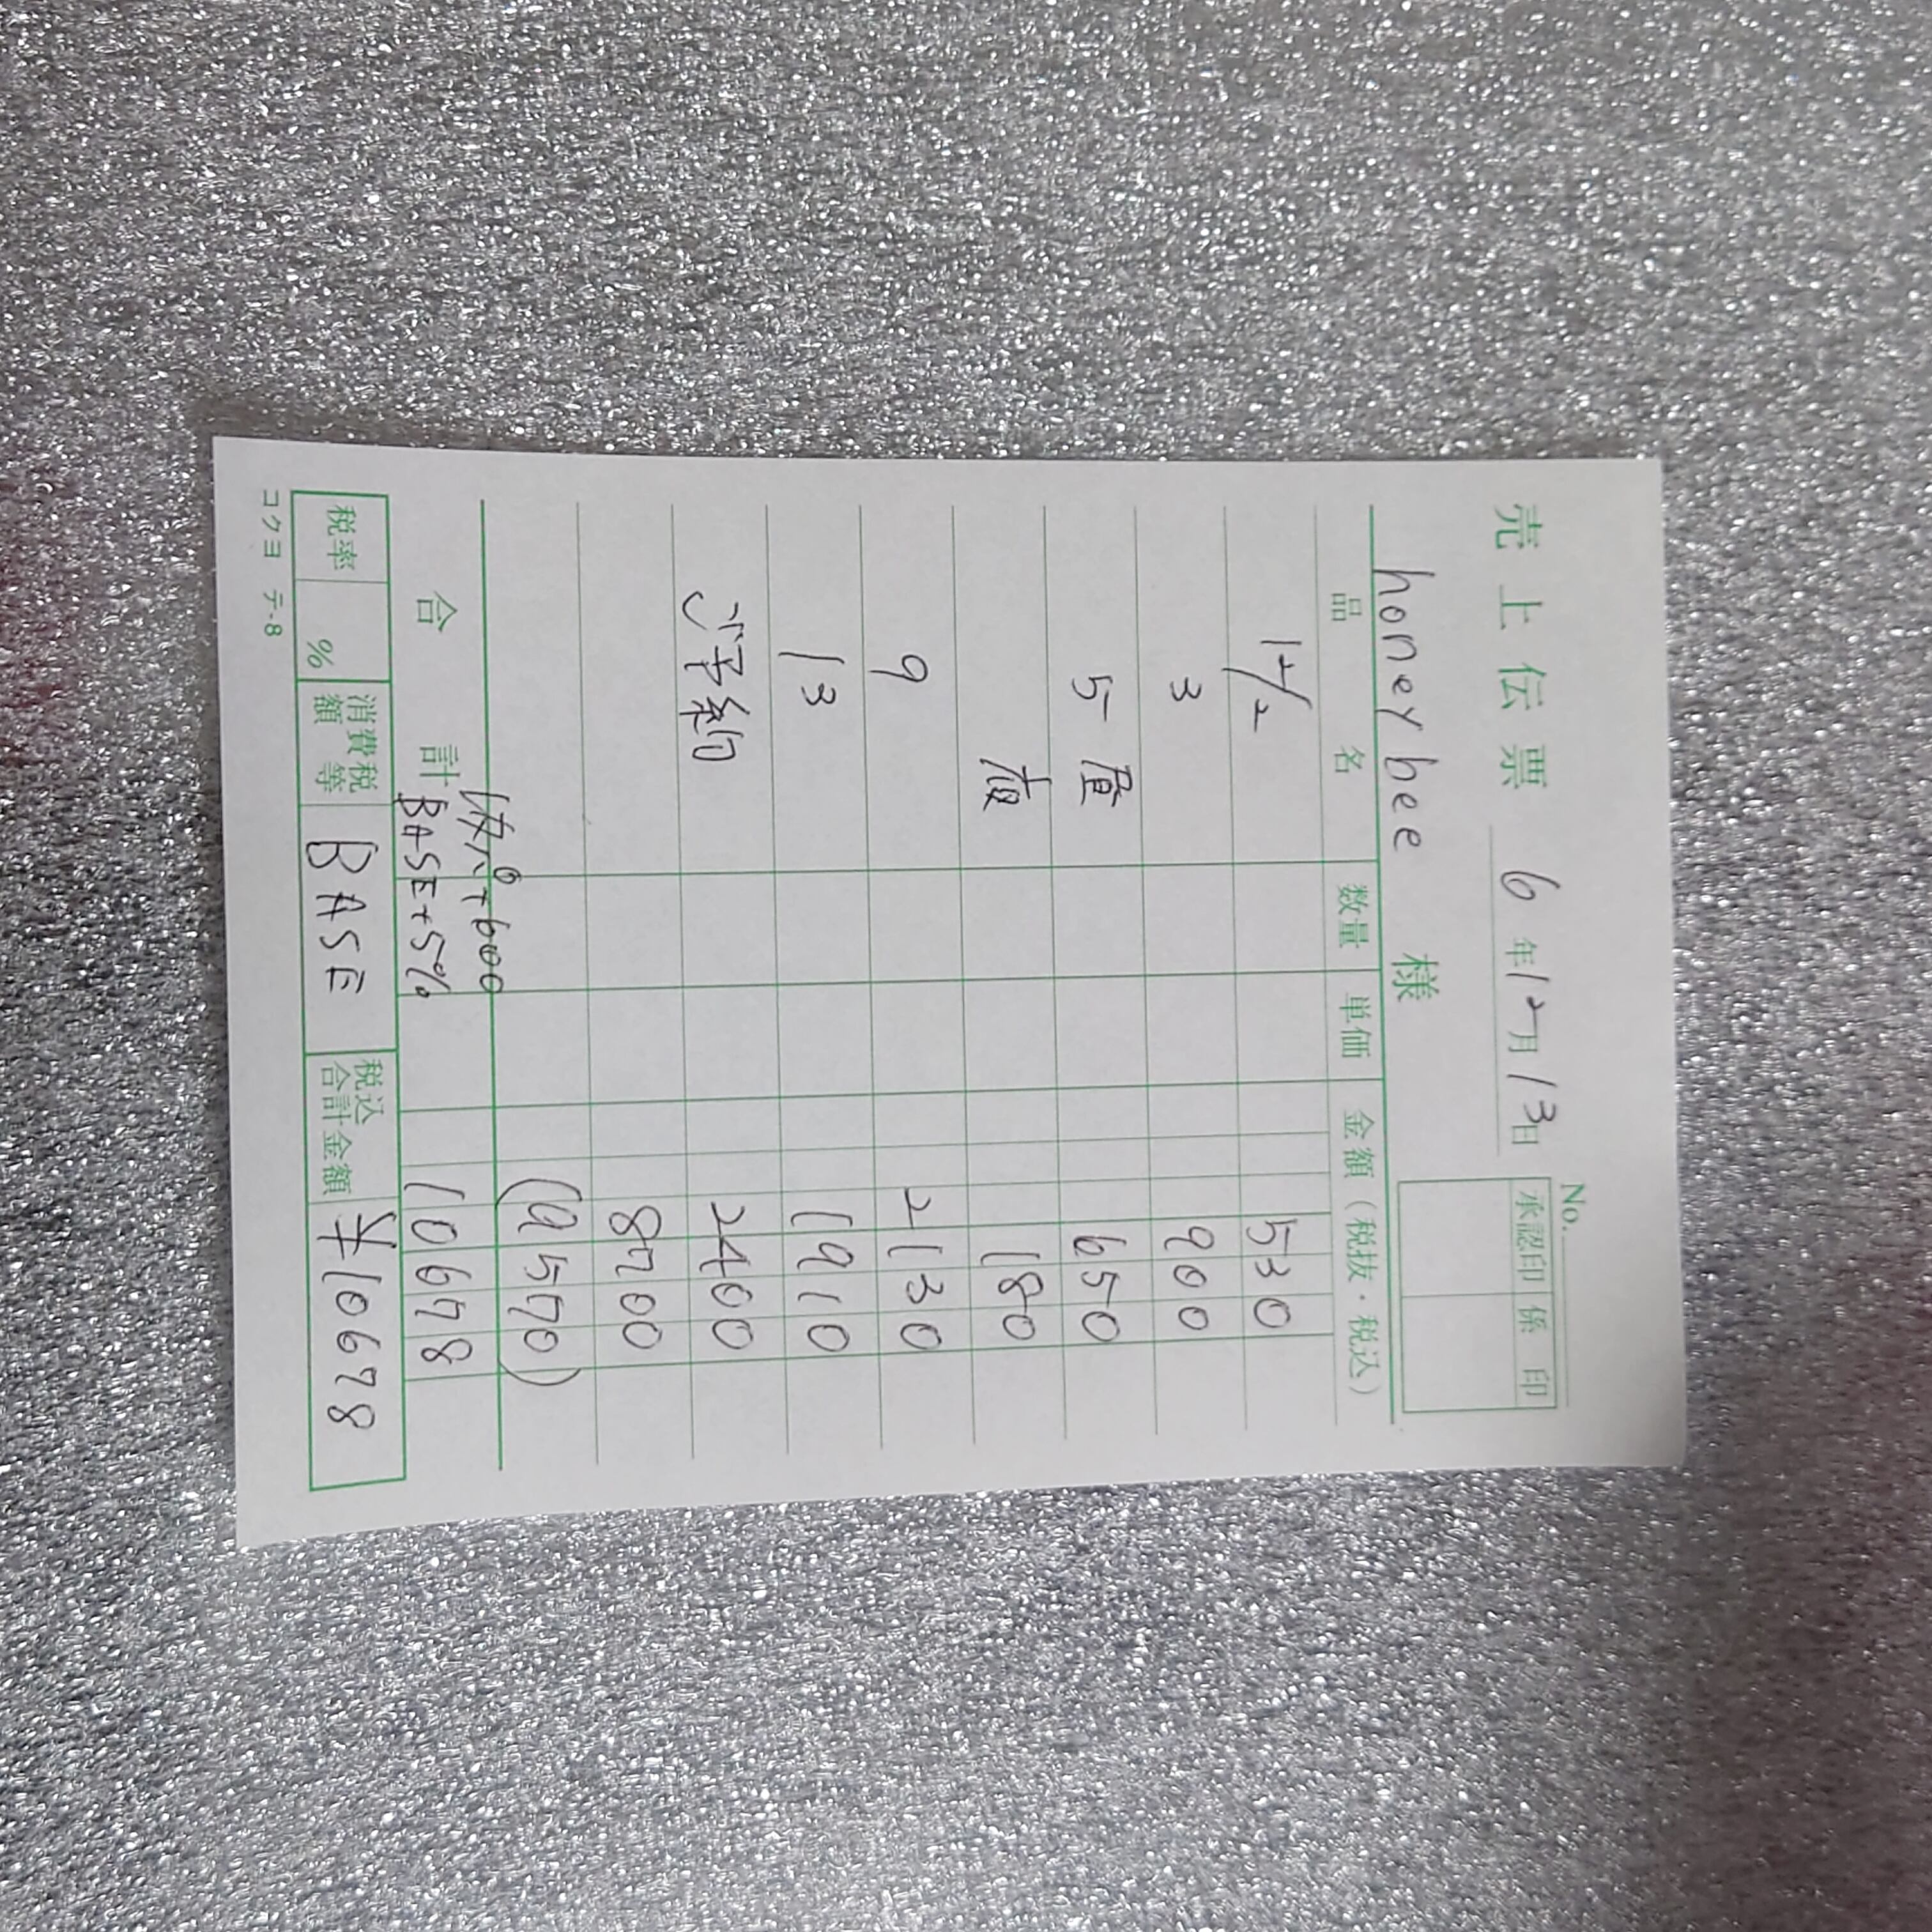 No.
売上伝票 6年12月13日
承認印 係印
honey bee 様
品名 数量 単価 金額（税抜・税込）
1 2/2 530
3 900
5 度 650
夜 180
9 2130
13 1910
予約 2400
8700
(9570)
+600
合計 BASE+5% 10678
税率 % 消費税額等 BASE 税込合計金額 ¥10678
コクヨ テ-8